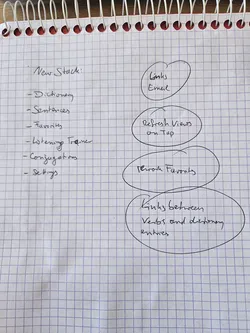 New Stack:
- Dictionary
- Sentences
- Favorites
- Listening Trainer
- Conjugation
- Settings
Links
Email
Refresh Views
on Tap
Favorites
Links between
Verbs and dictionary
entries